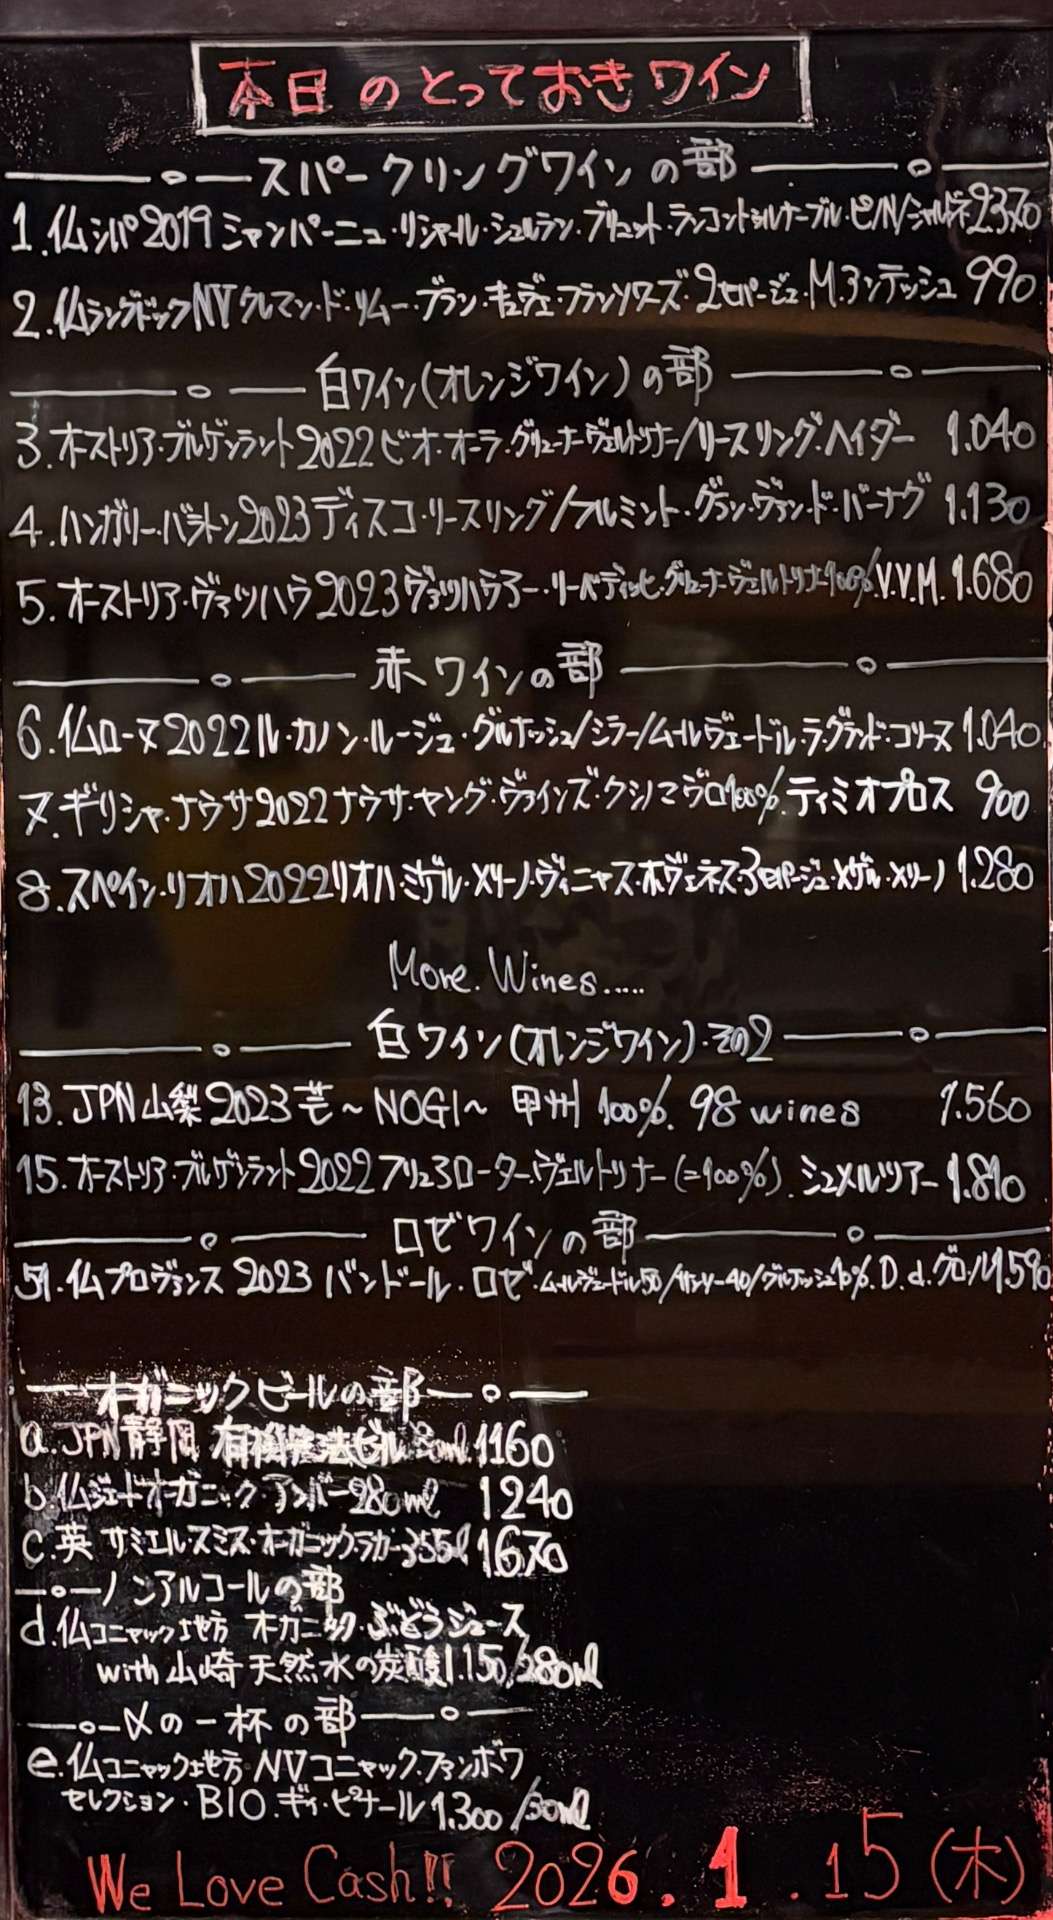 本日のとっておきワイン
スパークリングワインの部
1.仏シパ2019シャンパーニュ・リシャール・シュルラン・ブリュット・ラ・コントゥルナーブル・ピノN/シャルドネ2370
2.仏ラングドックNVクレマン・ド・リムー・ブラン・キュヴェ・フランソワーズ・2セパージュ・M.アンテッシュ 990
白ワイン(オレンジワイン)の部
3.オーストリア・ブルゲンラント2022ビオ・オーラ・グリューナーヴェルトリナー/リースリング・ヘイダー 1.040
4.ハンガリー・バラトン2023ディスコ・リースリング/フルミント・グラン・ヴァン・ド・バーナグ 1.130
5.オーストリア・ヴァッハウ2023ヴァッハウアー・リーベディッヒ・グリューナーヴェルトリナー100%.V.V.M. 1.680
赤ワインの部
6.仏ローヌ2022ル・カノン・ルージュ・グルナッシュ/シラー/ムールヴェードル・ラ・グランド・コリーヌ 1.040
7.ギリシャ・ナウサ2022ナウサ・ヤング・ヴァインズ・クシノマヴロ100%.ティミオプロス 900
8.スペイン・リオハ2022リオハ・ミゲル・メリーノ・ヴィニャス・ホヴェネス・3セパージュ・メゲル・メリーノ 1.280
More.Wines.....
白ワイン(オレンジワイン)・その2
13.JPN山梨2023芒〜NOGI〜 甲州 100%. 98wines 1.560
15.オーストリア・ブルゲンラント2022フリュアローター・ヴェルトリナー(=100%).シュメルツアー 1.810
ロゼワインの部
51.仏プロヴァンス2023 バンドール・ロゼ・ムールヴェードル50/サンソー40/グルナッシュ10%.D.d.グロ・ノレ 1.590
オガニックビールの部
a.JPN静岡 1160
b.仏ジェードオーガニック・アンバー280ml 1240
c.英 サミエル・スミス・オーガニック・ラガー355l 1670
ノンアルコールの部
d.仏コニャック地方 オガニック・ぶどうジュース
with山崎天然水の炭酸1.150/280ml
〆の一杯の部
e.仏コニャック地方・NVコニャック・ファンボワ
セレクション・BIO.ギィ・ピナール1.300/30ml
We Love Cash!! 2026.1.15(木)